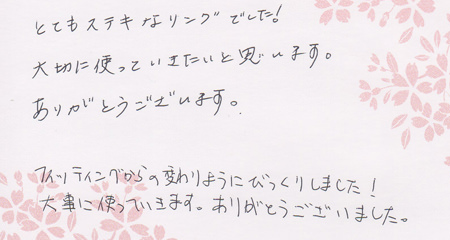 とてもステキなリングでした!
大切に使っていきたいと思います。
ありがとうございます。
フィッティングからの変わりようにびっくりしました!
大事に使っていきます。ありがとうございました。